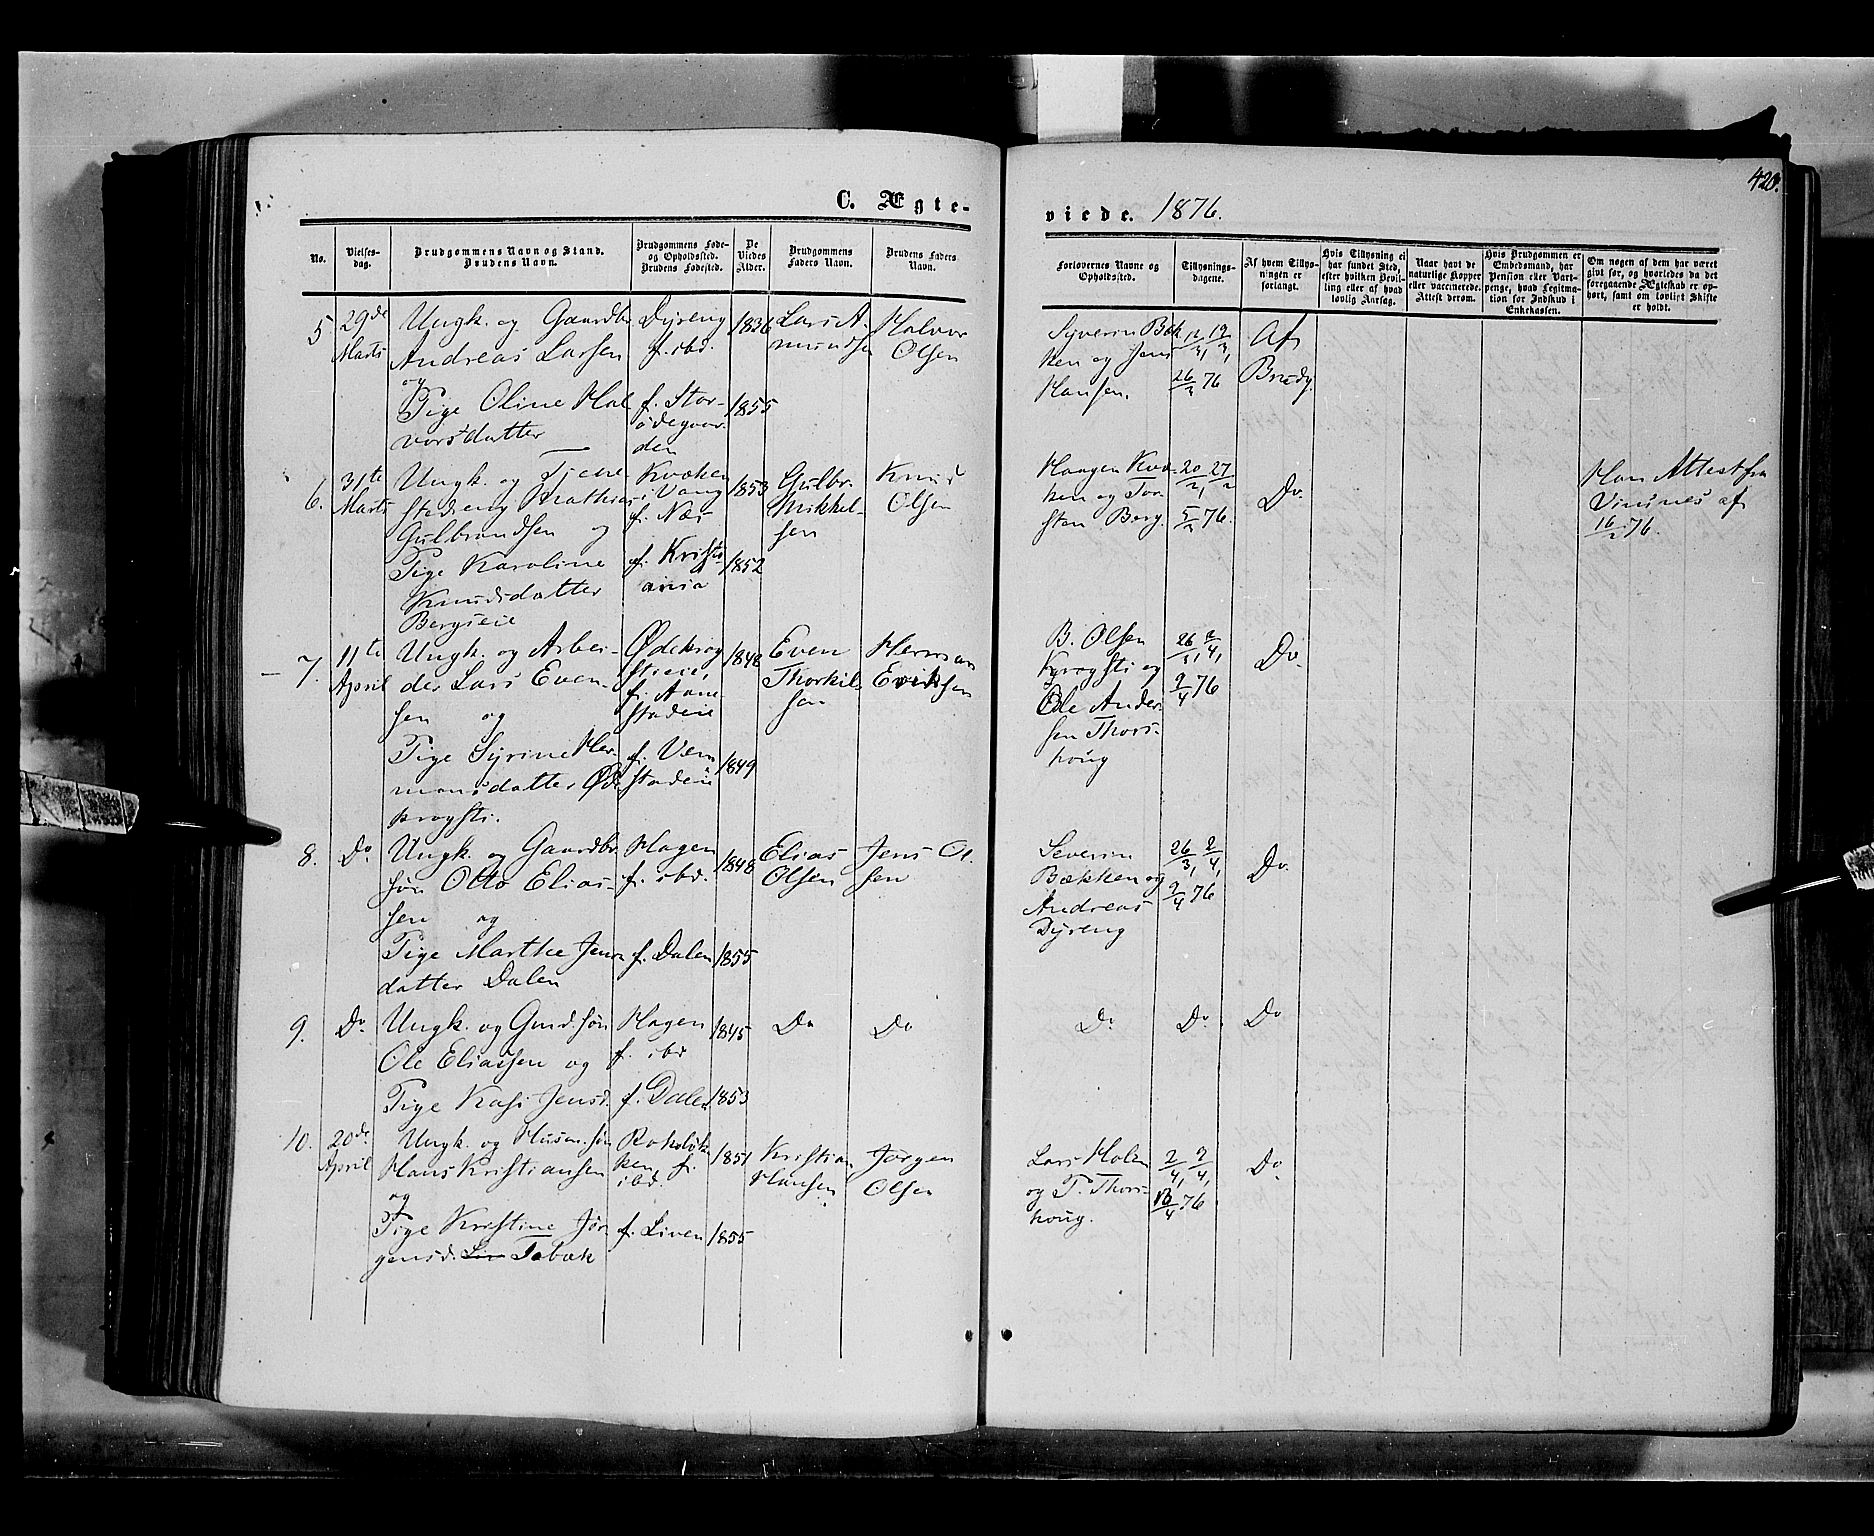 420.
C. Ægte-
viede. 1876.
No.
Vielses-
dag.
Brudgommens Navn og Stand.
Brudens Navn.
Brudgommens Føde-
og Opholdssted.
Brudens Fødested.
De
Viedes
Alder.
Brudgommens
Faders Navn.
Brudens Faders
Navn.
Forlovernes Navne og
Opholdssted.
Tillysnings-
dagene.
Af hvem Tillys-
ningen er
forlangt.
Hvis Tillysning ei
har fundet Sted,
efter hvilken Bevil-
ling eller af hvad
lovlig Aarsag.
Naar havt de
naturlige Kopper
eller vaccinerede.
Attest derom.
Hvis Brudgommen er
Embedsmand, har
Pension eller Vart-
penge, hvad Legitima-
tion for Indskud i
Enkekassen.
Om nogen af dem har været
gift før, og hvorledes da det
foregaaende Ægteskab er op-
hørt, samt om lovligt Skifte
er holdt.
5
29de
Marts
Ungk. og Gaardbr
Andreas Larsen
og
Pige Oline Hal
vorsdatter
Dyreng
f. ibd.
f. Stor-
ødegaar
den
1836
1855
Lars A-
mundsen
Halvor
Olsen
Syverin Bæk
ken og Jens
Hansen.
12/3, 19/3,
26/3 76
Af
Brudg.
6.
31te
Marts
Ungk. og Tjene
stedreng Mathias
Gulbrandsen og
Pige Karoline
Knudsdatter
Bergseie
Kvæken
i Vang
f. Næs
f. Kristi
ania
1853
1852
Gulbr.
Mikkel-
sen
Knud
Olsen
Haagen Kvæ-
ken og Tor
sten Berg.
20/2, 27/2
5/3 76.
Do.
Han Attest fra
Vinsnes af
16/2 76.
7.
11te
April
Ungk. og Arbei-
der Lars Even-
sen og
Pige Syrine Her-
mansdatter Øde
krogsti.
Ødekrog
stieie,
f. Aane
stadeie
f. Vem
stadeie
1848
1849
Even
Thorkil-
sen
Herman
Eriksen
B. Olsen
Krogsti og
Ole Ander-
sen Thors-
houg
26/3, 2/4,
9/4 76
Do.
8.
Do.
Ungk. og Gaardbr
søn Otto Elias-
sen og
Pige Marthe Jens
datter Dalen
Hagen
f. ibd.
f. Dalen
1848
1855
Elias
Olsen
Jens Ol-
sen
Severin
Bækken og
Andreas
Dyreng
26/3, 2/4,
9/4 76
Do.
9.
Do.
Ungk. og Grd.søn
Ole Eliassen og
Pige Kasi Jensd.
Hagen
f. ibd
f. Dalen
1845
1853
Do
Do
Do
Do.
Do
10.
20de
April
Ungk. og Husm.søn
Hans Kristiansen
og
Pige Kristine Jør-
gensd. Liv Tobak
f.
ibd.
f. Liven
1851
1855
Kristian
Hansen
Jørgen
Olsen
Lars Holen
og P. Thors-
houg.
2/4, 9/4,
76
Do